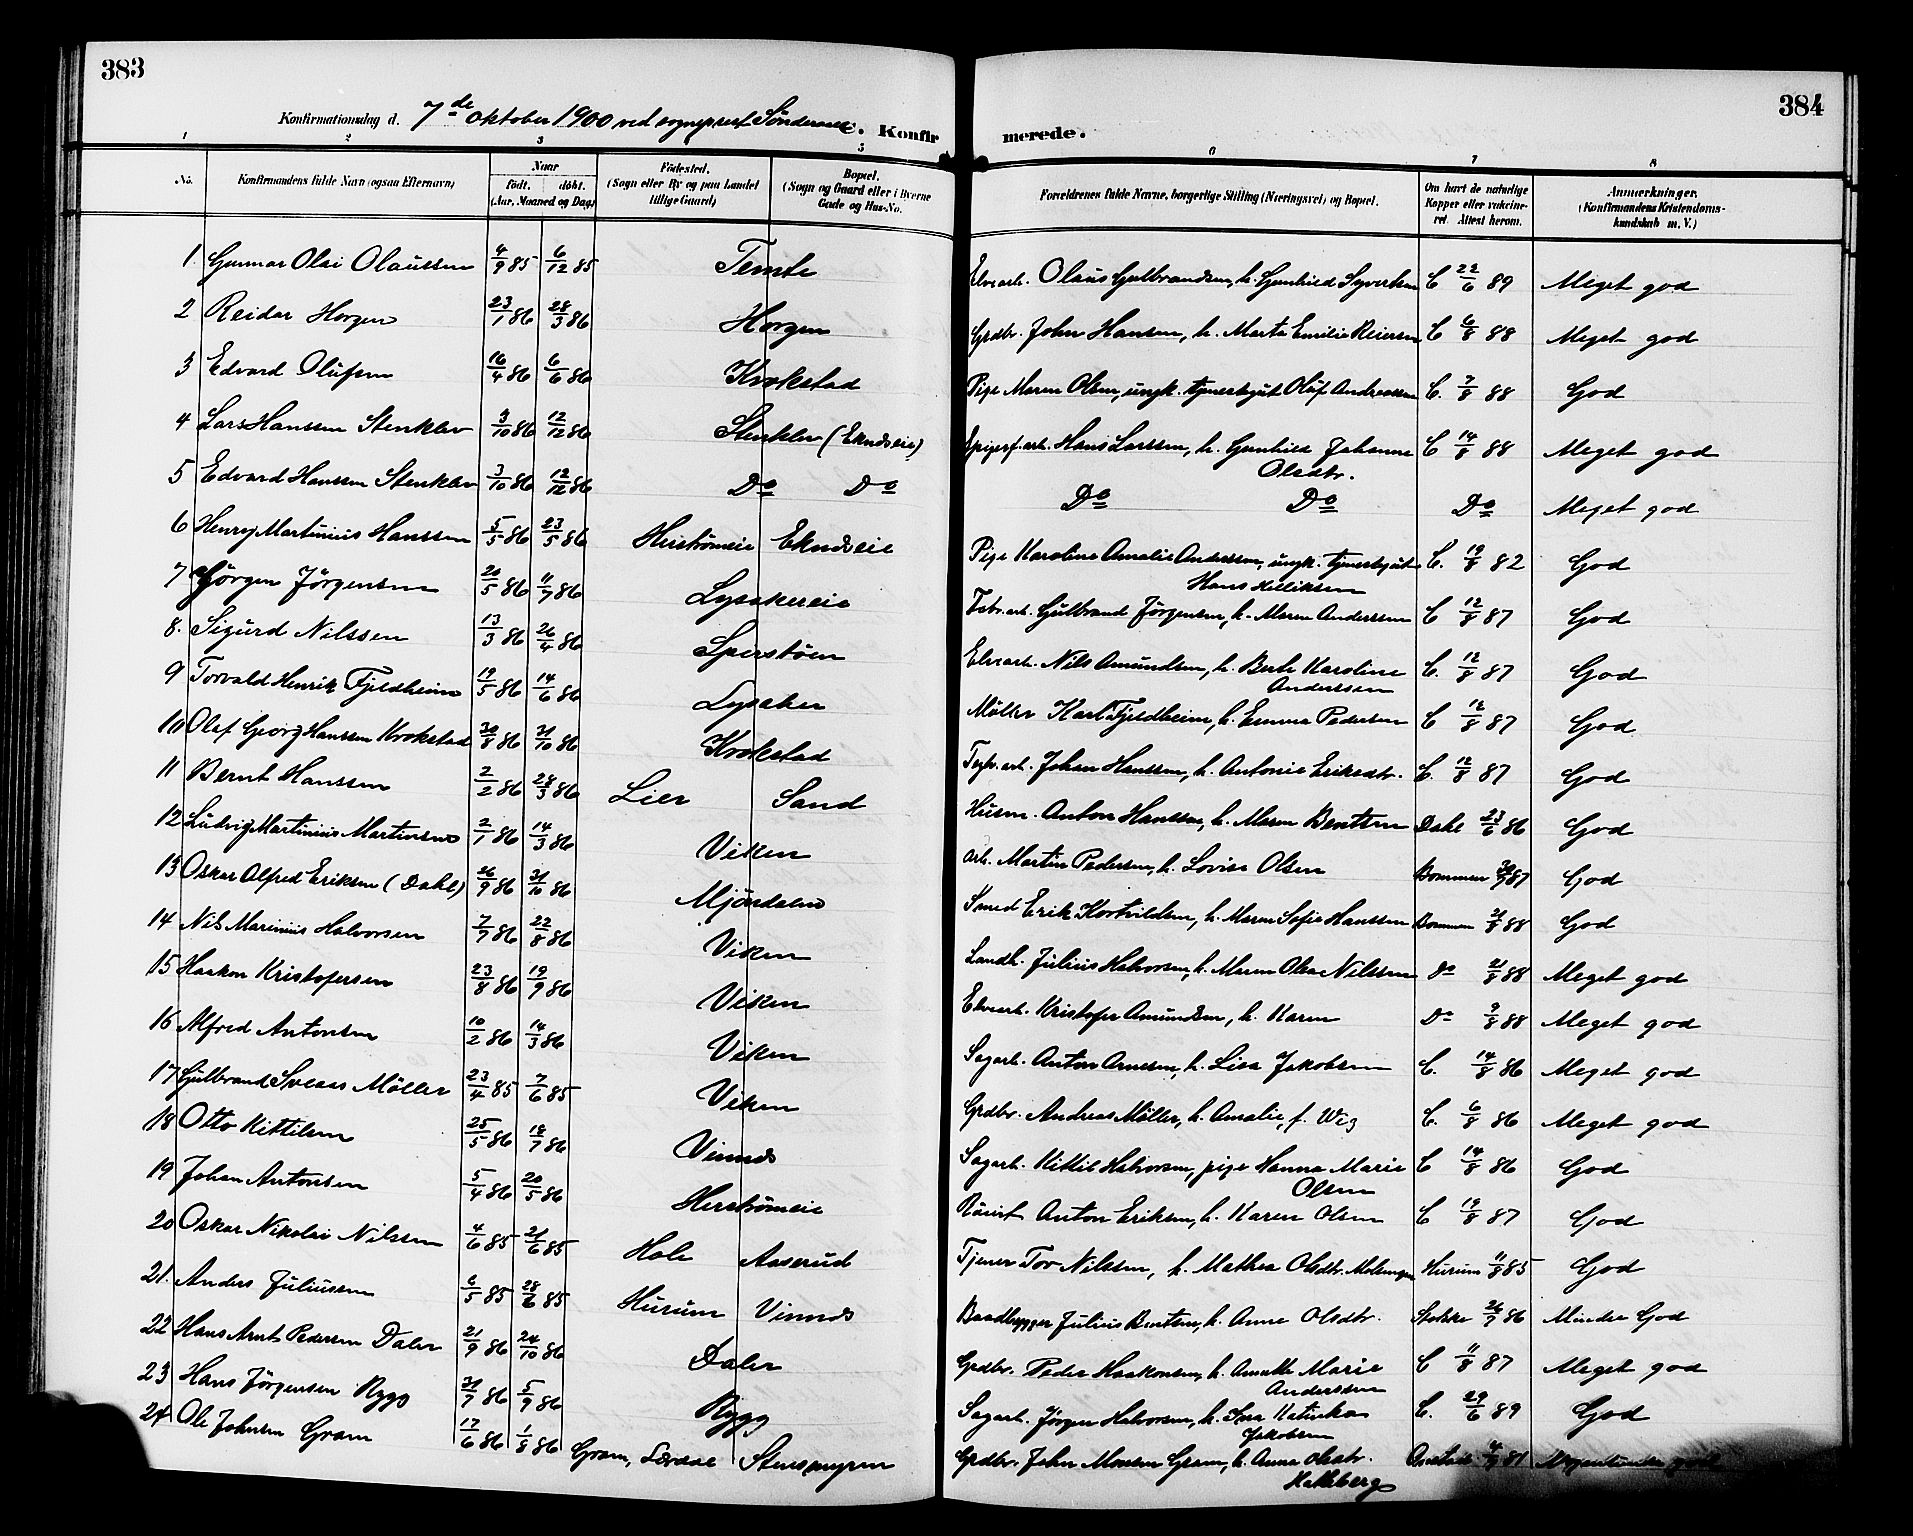 383
384
Konfirmationsdag d. 7de oktober 1900 ved sogneprest Sönderaase C. Konfir merede.
1 2 3 5 6 7 8
No. Konfirmandens fulde Navn (ogsaa Efternavn) Naar födt. döbt. (Aar, Maaned og Dag) Födested. (Sogn eller By og paa Landet tillige Gaard) Bopæl. (Sogn og Gaard eller i Byerne Gade og Hus-No. Forældrenes fulde Navne, borgerlige Stilling (Næringsvei) og Bopæl. Om havt de naturlige Kopper eller vakcineret. Attest herom. Anmærkninger. (Konfirmandens Kristendomskundskab m. V.)
1 Gunnar Olai Olaussen 4/9 85 6/12 85 Temte Elvearb. Olaus Gulbrandsen, h. Gunhild Syvertsen C 22/6 89 Meget god
2 Reidar Horgen 23/1 86 28/3 86 Horgen Grdbr. John Hansen, h. Marte Emilie Reiersen C 6/8 88 Meget god
3 Edvard Olufsen 16/4 86 6/6 86 Krokstad Pige Maren Olsen, ungk. tjenestgut Oluf Andreassen C. 7/8 88 God
4 Lars Hanssen Stenklev 3/10 86 12/12 86 Stenklev (Ekndseie) Spigerf.arb. Hans Larssen, h. Gunhild Johanne Olsdtr. C 14/8 88 Meget god
5 Edvard Hanssen Stenklev 3/10 86 12/12 86 Do Do Do Do Do Meget god
6 Henry Martinius Hanssen 5/5 86 23/5 86 Herströmeie Ekndseie Pige Karoline Amalie Anderssen, ungk. tjenestgut Hans Killiksen C. 19/8 82 God
7 Jörgen Jörgensen 20/5 86 11/7 86 Lysakereie Fabr.arb. Gulbrand Jörgensen, h. Maren Anderssen C 12/8 87 God
8. Sigurd Nilssen 13/3 86 26/4 86 Sperstöen Elvearb. Nils Amundsen, h. Berte Karoline Anderssen C. 12/8 87 God
9 Torvald Henrik Fjeldheim 19/5 86 14/6 86 Lysaker Möller Karl Fjeldheim, h. Emma Pedersen C 12/8 87 God
10 Olaf Georg Hanssen Krokstad 30/8 86 31/10 86 Krokstad arb. Johan Hanssen, h. Antonie Eriksdtr. C. 12/8 87 God
11 Bernt Hanssen 2/2 86 28/3 86 Lier Sand Husm. Anton Hanssen, h. Maren Bentsen Dahl 23/6 86 God
12 Ludvig Martinius Martinsen 2/1 86 14/3 86 Viken arb. Martin Pedersen, h. Lovise Olsen Bommen 87 God
13 Oskar Alfred Eriksen (Dahl) 26/9 86 31/10 86 Mjöndalen Smed Erik Kortvildsen, h. Maren Sofie Hanssen Bommen 88 God
14 Nils Marinius Halvorsen 7/7 86 22/8 86 Viken Landh. Julius Halvorsen, h. Maren Olsa Nilssen Do 21/8 88 Meget god
15 Haakon Kristofersen 23/8 86 19/9 86 Viken Elvearb. Kristofer Amundsen, h. Karen Do 9/8 88 Meget god
16 Alfred Antonsen 10/2 86 14/3 86 Viken Sagarb. Anton Arnesen, h. Lisa Jakobsen C. 14/8 86 Meget god
17 Gulbrand Sveaas Möller 23/4 85 7/6 85 Viken Grdbr. Andreas Möller, h. Amalie, f. Wig C. 6/8 86 Meget god
18 Otto Kittilsen 25/5 86 18/7 86 Vinnds Sagarb. Kittil Halvorsen, pige Hanna Marie Olsen C 14/8 86 God
19 Johan Antonsen 5/4 86 20/5 86 Herströmeie Anton Eriksen, h. Karen Olsen C 19/8 87 God
20 Oskar Nikolai Nilssen 4/6 85 21/6 85 Hole Aaserud Tjener Tor Nilssen, h. Mathea Olsdtr. Hurum 11/8 85 God
21. Anders Juliussen 6/5 85 28/6 85 Hurum Vinnds Baadbygger Julius Bentsen, h. Anne Olsdtr. 26/7 86 Mindre God
22 Hans Arnt Pedersen Daler 21/9 86 24/10 86 Daler Grdbr. Peder Haakonsen, h. Anette Marie Anderssen C 11/8 87 Meget god
23 Hans Jörgensen Rygg 31/7 86 5/9 86 Rygg Sagarb. Jörgen Halvorsen, h. Ina Katinka Jakobsen C. 29/6 89 God
24 Ole Johnsen Gram 17/6 86 1/8 86 Gram, Stensmyren Grdbr. John Monsen Gram, h. Anna Olsdtr. Hakeberg